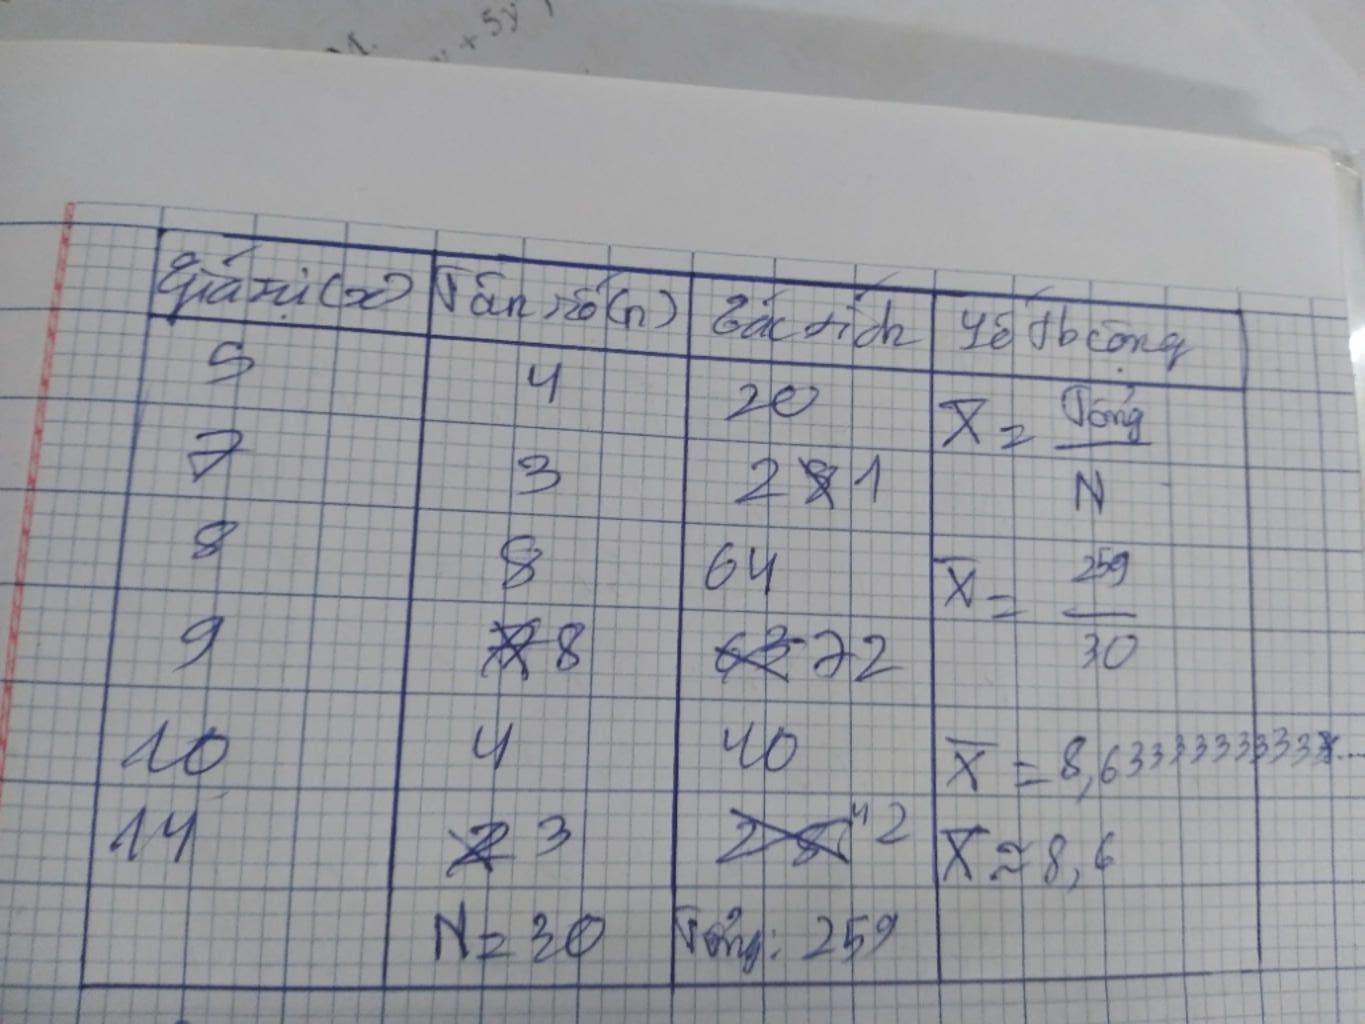 + 5y
Giá trị (x) Tần số (n) Các tích Số tb cộng
5 4 20 X̅ = Tổng / N
7 3 21
8 8 64 X̅ = 259 / 30
9 8 72
10 4 40 X̅ = 8,63333333333...
14 3 42 X̅ ≈ 8,6
N = 30 Tổng: 259